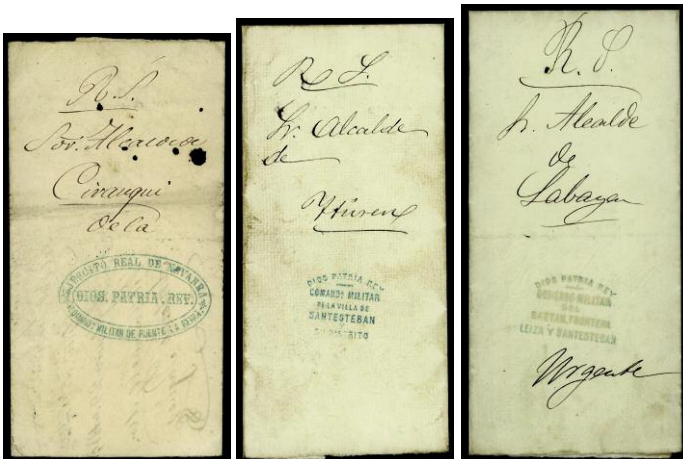 R. S.
Sor. Alcalde de
Cirauqui
EJERCITO REAL DE NAVARRA
DIOS. PATRIA. REY.
COMANDᵃ MILITAR DE PUENTE LA REINA
R S.
Sr. Alcalde
de
Yturen
DIOS PATRIA REY
COMANDᵃ MILITAR
DE LA VILLA DE
SANTESTEBAN
Y
SU DISTRITO
R. S.
Sr. Alcalde
de
Labayen
DIOS PATRIA REY
GOBIERNO MILITAR
DEL
BAZTAN, FRONTERA
LEIZA Y SANTESTEBAN
Urgente